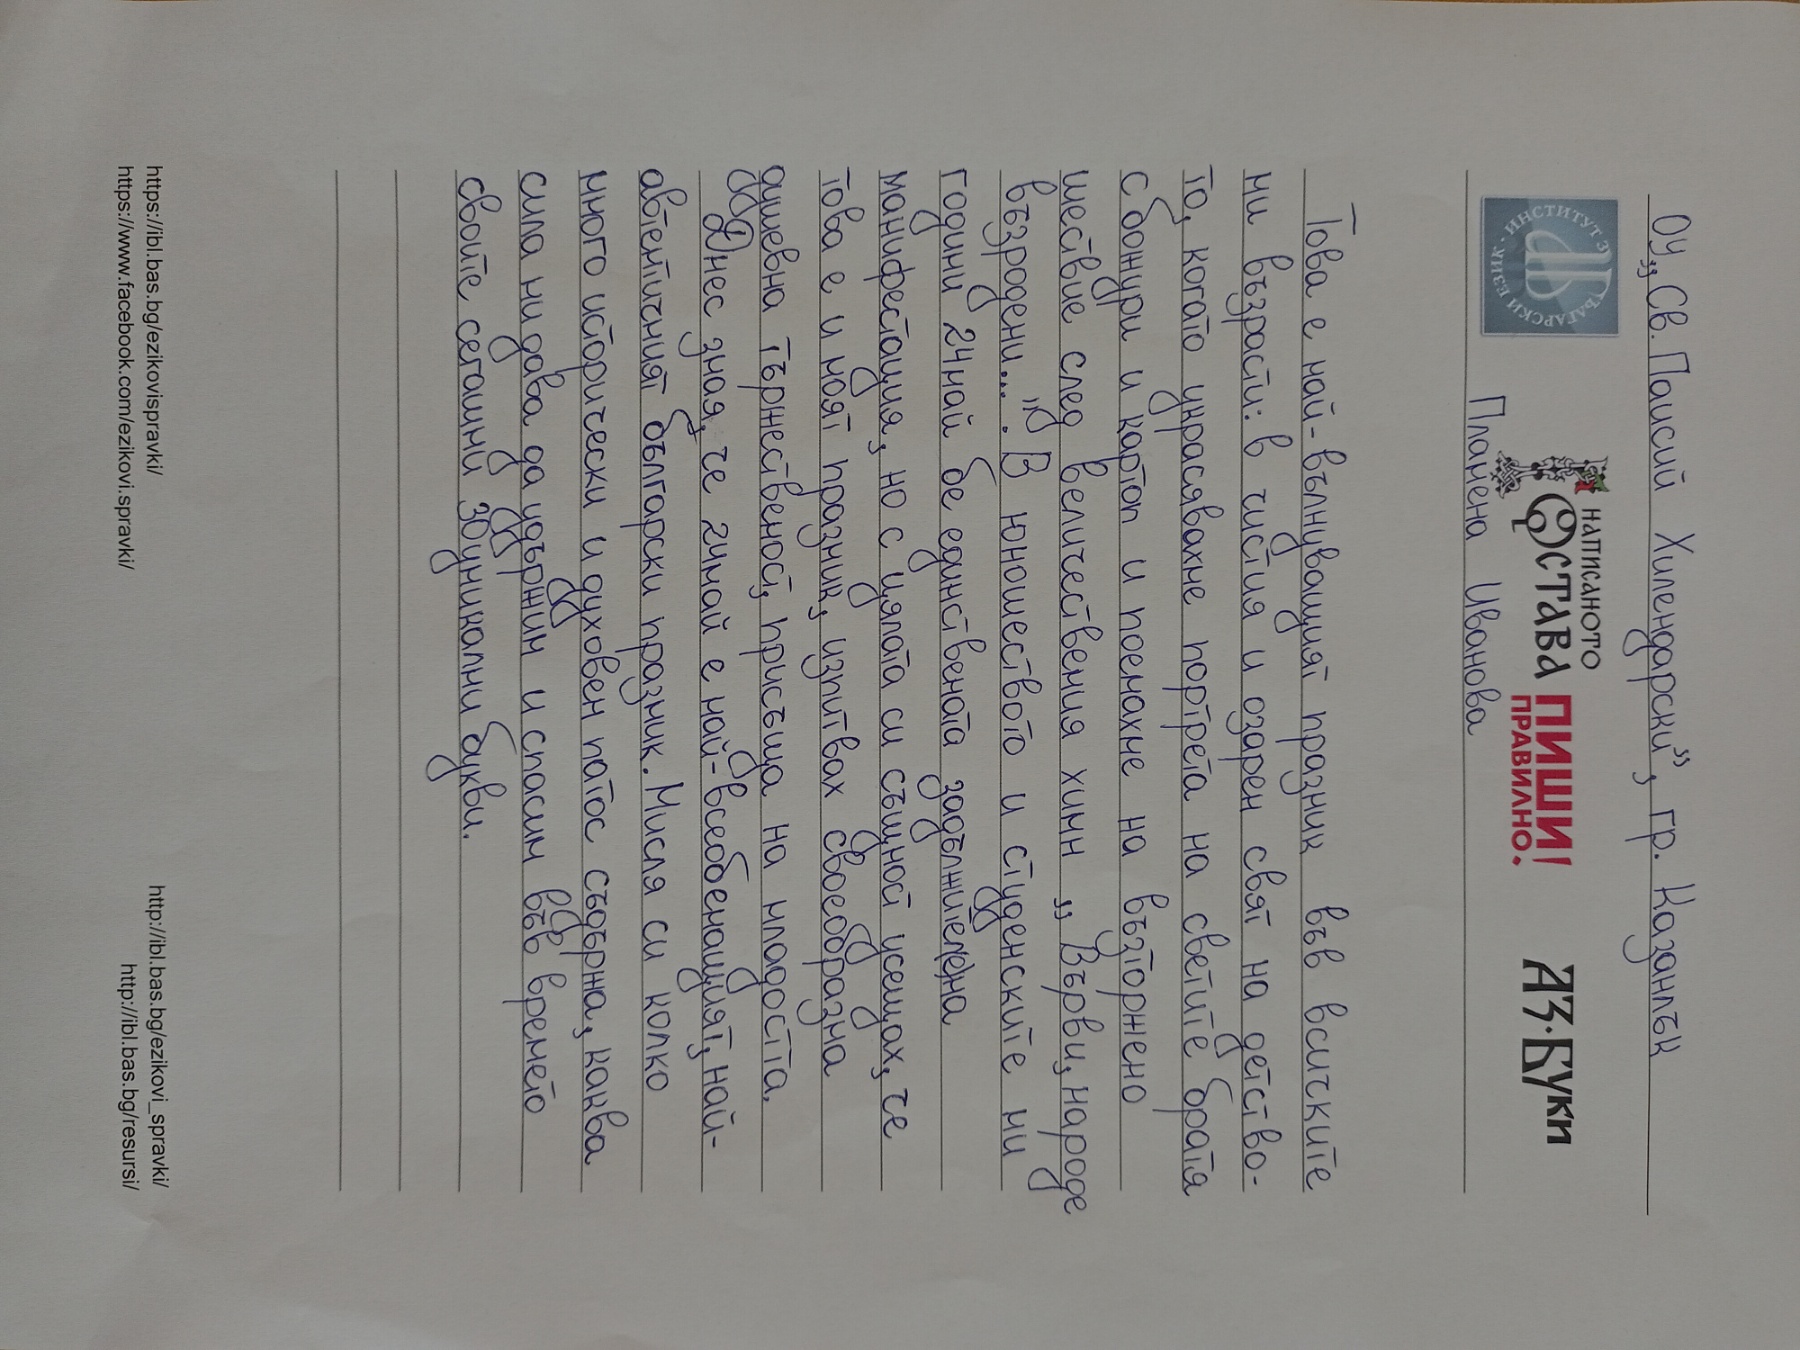 ОУ „Св. Паисий Хилендарски”, гр. Казанлък
ИНСТИТУТ ЗА БЪЛГАРСКИ ЕЗИК
НАПИСАНОТО
ОСТАВА ПИШИ!
ПРАВИЛНО.
АЗ·БУКИ
Пламена Иванова
Това е най-вълнуващият празник във всичките
ми възрасти: в чистия и озарен свят на детство-
то, когато украсявахме портрета на светите братя
с божури и картон и поемахме на възторжено
шествие след величествения химн „Върви, народе
възродени...”. В юношеството и студенските ми
години 24 май бе единствената задължите(е)на
манифестация, но с цялата си същност усещах, че
това е и моят празник, изпитвах своеобразна
душевна тържественост, присъща на младостта.
Днес зная, че 24 май е най-всеобемащият, най-
автентичният български празник. Мисля си колко
много исторически и духовен патос съдържа, каква
сила ни дава да удържим и спасим във времето
своите сегашни 30 уникални букви.
https://ibl.bas.bg/ezikovispravki/ http://ibl.bas.bg/ezikovi_spravki/
https://www.facebook.com/ezikovi.spravki/ http://ibl.bas.bg/resursi/